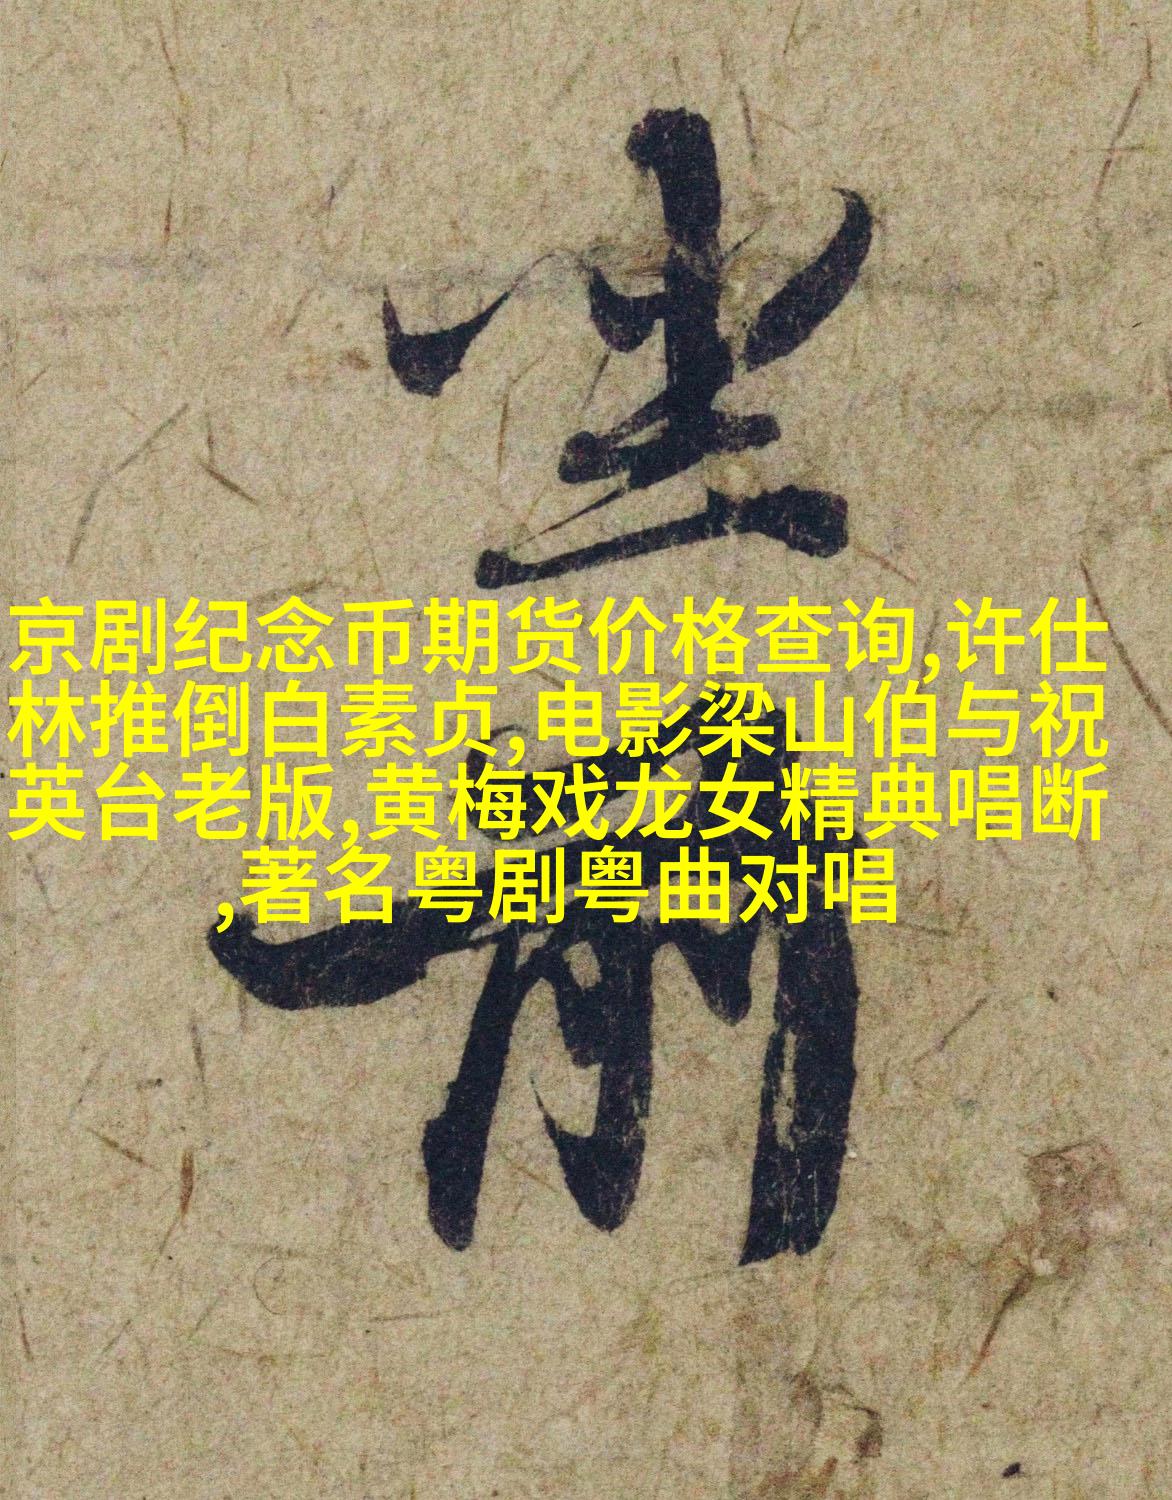 京剧纪念币期货价格查询,许仕
林推倒白素贞,电影梁山伯与祝
英台老版,黄梅戏龙女精典唱断
,著名粤剧粤曲对唱